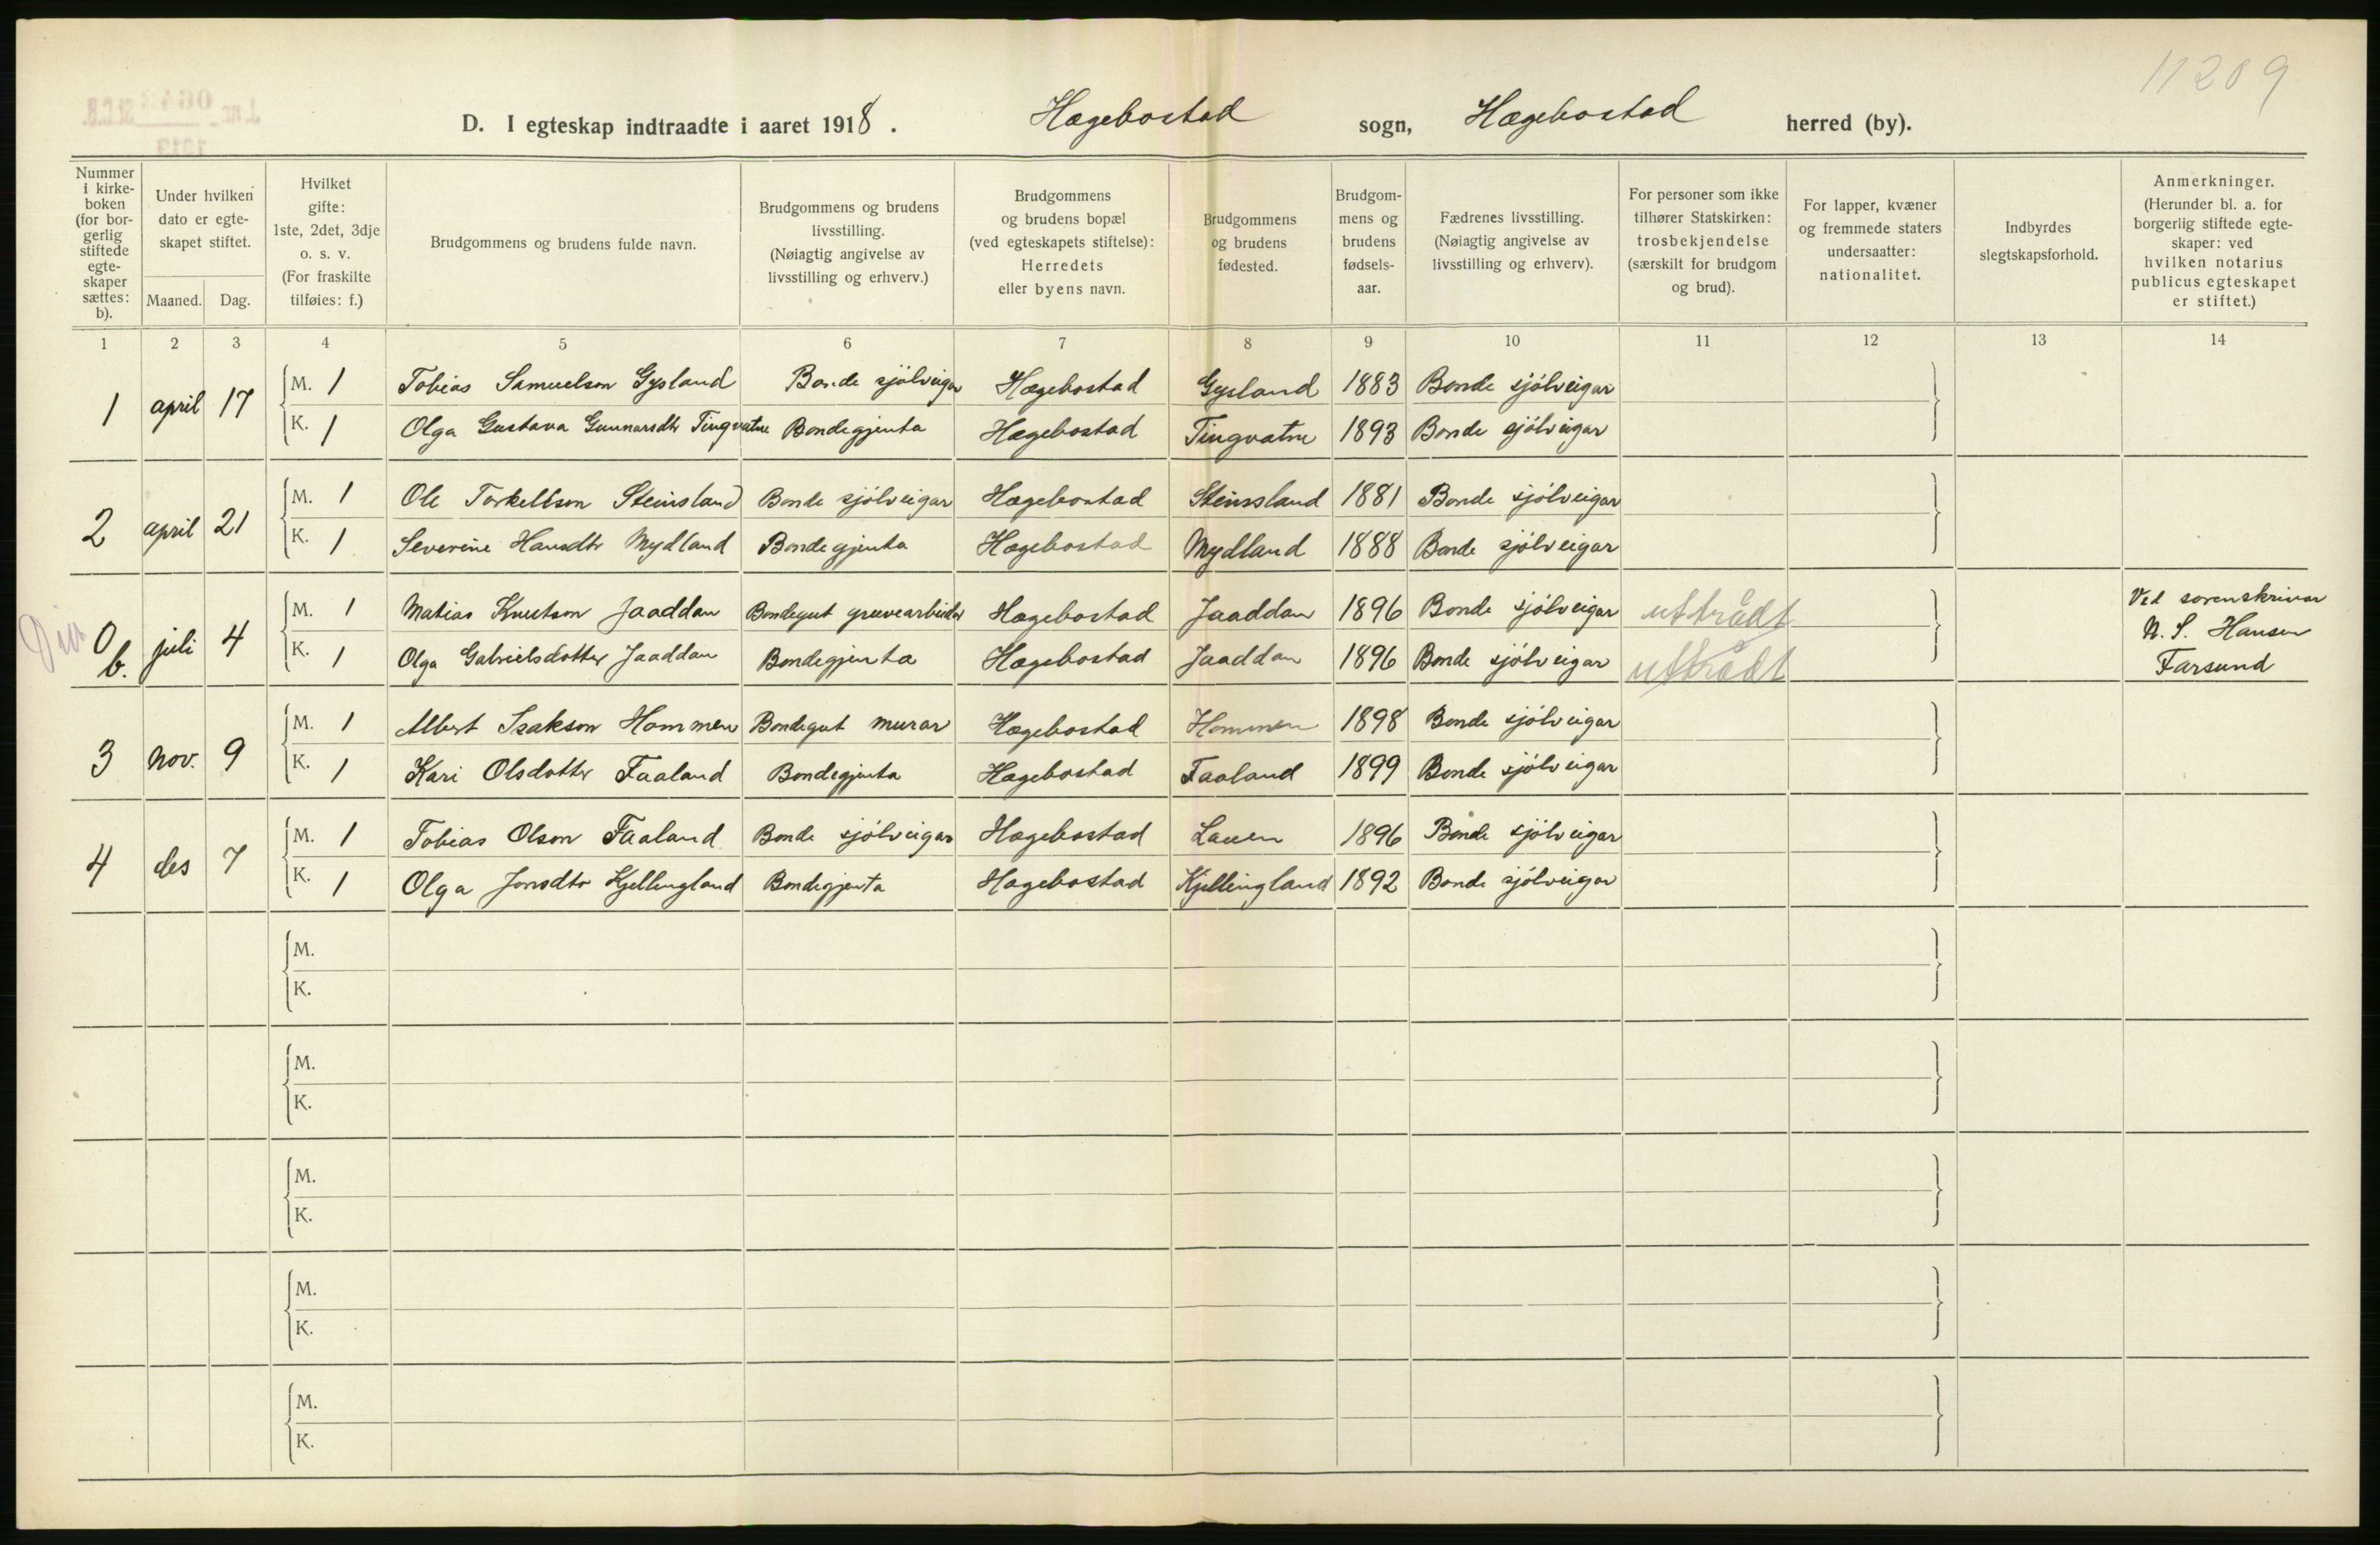 11209
D. I egteskap indtraadte i aaret 1918. Hægebostad sogn, Hægebostad herred (by).
Nummer i kirke-boken (for bor-gerlig stiftede egte-skaper sættes: b).
Under hvilken dato er egte-skapet stiftet.
Maaned. Dag.
Hvilket gifte: 1ste, 2det, 3dje o. s. v. (For fraskilte tilføies: f.)
Brudgommens og brudens fulde navn.
Brudgommens og brudens livsstilling. (Nøiagtig angivelse av livsstilling og erhverv.)
Brudgommens og brudens bopæl (ved egteskapets stiftelse): Herredets eller byens navn.
Brudgommens og brudens fødested.
Brudgom-mens og brudens fødsels-aar.
Fædrenes livsstilling. (Nøiagtig angivelse av livsstilling og erhverv).
For personer som ikke tilhører Statskirken: trosbekjendelse (særskilt for brudgom og brud).
For lapper, kvæner og fremmede staters undersaatter: nationalitet.
Indbyrdes slegtskapsforhold.
Anmerkninger. (Herunder bl. a. for borgerlig stiftede egte-skaper: ved hvilken notarius publicus egteskapet er stiftet.)
1 2 3 4 5 6 7 8 9 10 11 12 13 14
1 april 17 M. 1 Tobias Samuelson Gysland Bonde sjölveigar Hægebostad Gysland 1883 Bonde sjölveigar
K. 1 Olga Gustava Gunnarsdtr Tingvatne Bondegjenta Hægebostad Tingvatne 1893 Bonde sjölveigar
2 april 21 M. 1 Ole Torkellson Steinsland Bonde sjölveigar Hægebostad Steinsland 1881 Bonde sjölveigar
K. 1 Severine Hansdtr Mydland Bondegjenta Hægebostad Mydland 1888 Bonde sjölveigar
0 b. juli 4 M. 1 Matias Knutson Jaaddan Bondegut gruvearbeider Hægebostad Jaaddan 1896 Bonde sjölveigar uttrådt Ved sorenskrivar
N. S. Hansen
K. 1 Olga Gabrielsdotter Jaaddan Bondegjenta Hægebostad Jaaddan 1896 Bonde sjölveigar uttrådt Farsund
3 nov. 9 M. 1 Albert Isakson Hommen Bondegut murar Hægebostad Hommen 1898 Bonde sjölveigar
K. 1 Kari Olsdotter Faaland Bondegjenta Hægebostad Faaland 1899 Bonde sjölveigar
4 des 7 M. 1 Tobias Olson Faaland Bonde sjölveigar Hægebostad Lauen 1896 Bonde sjölveigar
K. 1 Olga Jonsdtr Kjellingland Bondegjenta Hægebostad Kjellingland 1892 Bonde sjölveigar
M.
K.
M.
K.
M.
K.
M.
K.
M.
K.